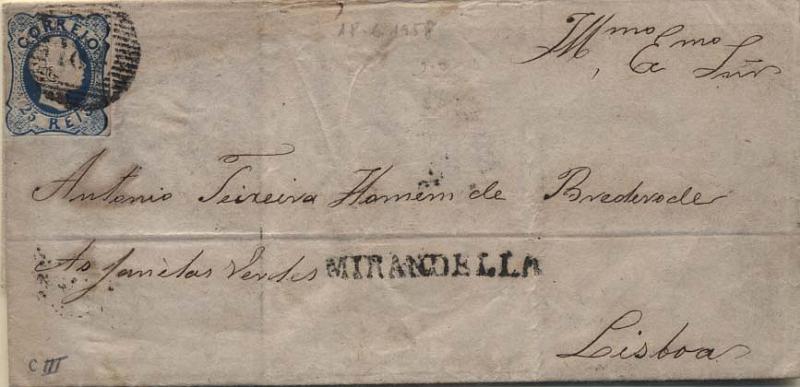 CORREIO
25 REIS
18-6-1958
Illmo Exmo Snr
Antonio Teixeira Homem de Brederode
As Janellas Verdes
MIRANDELLA
Lisboa
C III